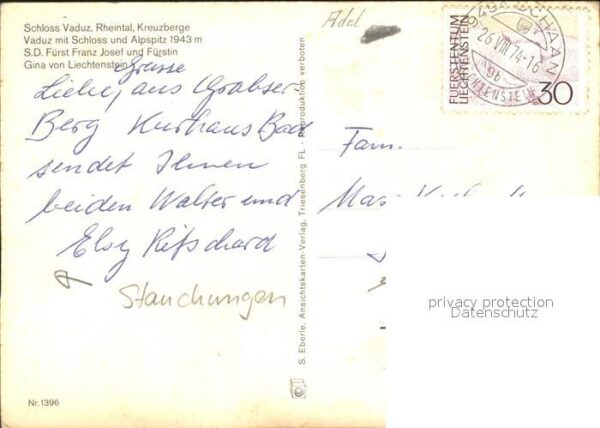 Schloss Vaduz, Rheintal, Kreuzberge
Vaduz mit Schloss und Alpspitz 1943 m
S.D. Fürst Franz Josef und Fürstin
Gina von Liechtenstein
Grüsse
Liebe, aus Grabser-
Berg Kurhaus Bad
sendet Ihnen
beiden Walter und
Elsy
Stauchungen
Nr. 1396
S. Eberle, Ansichtskarten-Verlag, Triesenberg FL - Reproduktion verboten
Adel
FUERSTENTUM
LIECHTENSTEIN
30
9494 SCHAAN
26 VIII 74-16
9b
Fam.
privacy protection
Datenschutz